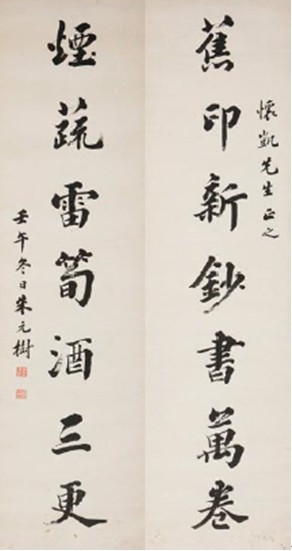 懷凱先生正之
蕉印新鈔書萬卷
煙蔬雷筍酒三更
壬午冬日朱元樹